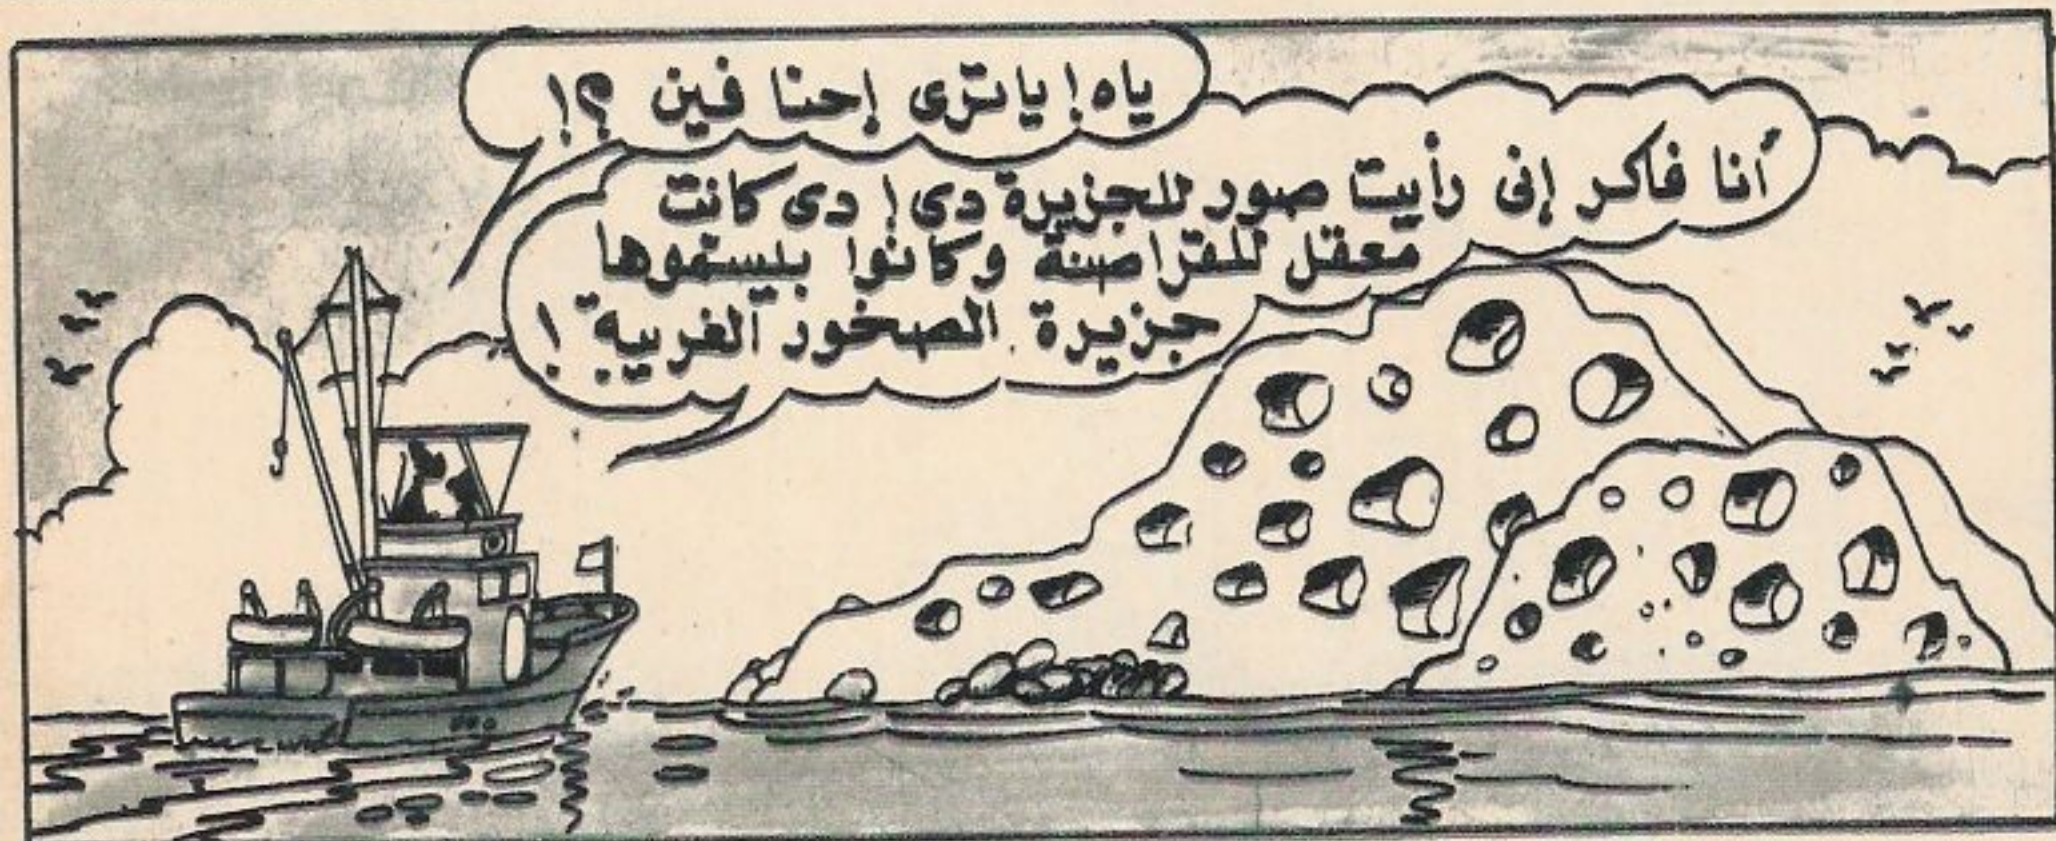 ياه! ياترى إحنا فين ؟!
أنا فاكر إنى رأيت صور للجزيرة دى! دى كانت
معقل للقراصنة وكانوا بيسموها
جزيرة الصخور الغريبة !